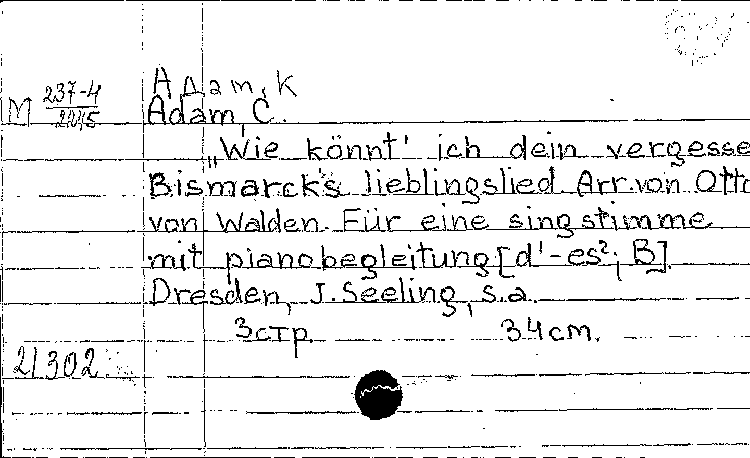 Адам, К
M 237-4
Adam, C.
„Wie könnt' ich dein vergesse
Bismarck's lieblingslied. Arr. von Otto
von Walden. Für eine singstimme
mit pianobegleitung [d'-es²; B].
Dresden, J. Seeling, s.a.
3 стр. 34 см.
21302